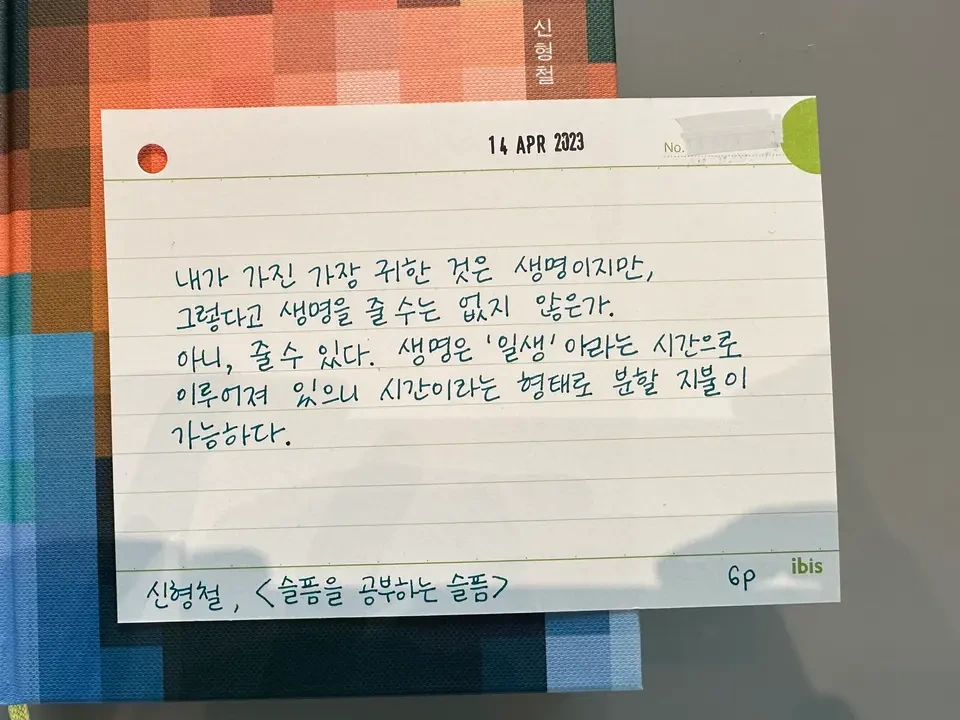 신형철
14 APR 2023
No.
내가 가진 가장 귀한 것은 생명이지만,
그렇다고 생명을 줄 수는 없지 않은가.
아니, 줄 수 있다. 생명은 '일생'이라는 시간으로
이루어져 있으니 시간이라는 형태로 분할 지불이
가능하다.
ibis
신형철, <슬픔을 공부하는 슬픔>
6p